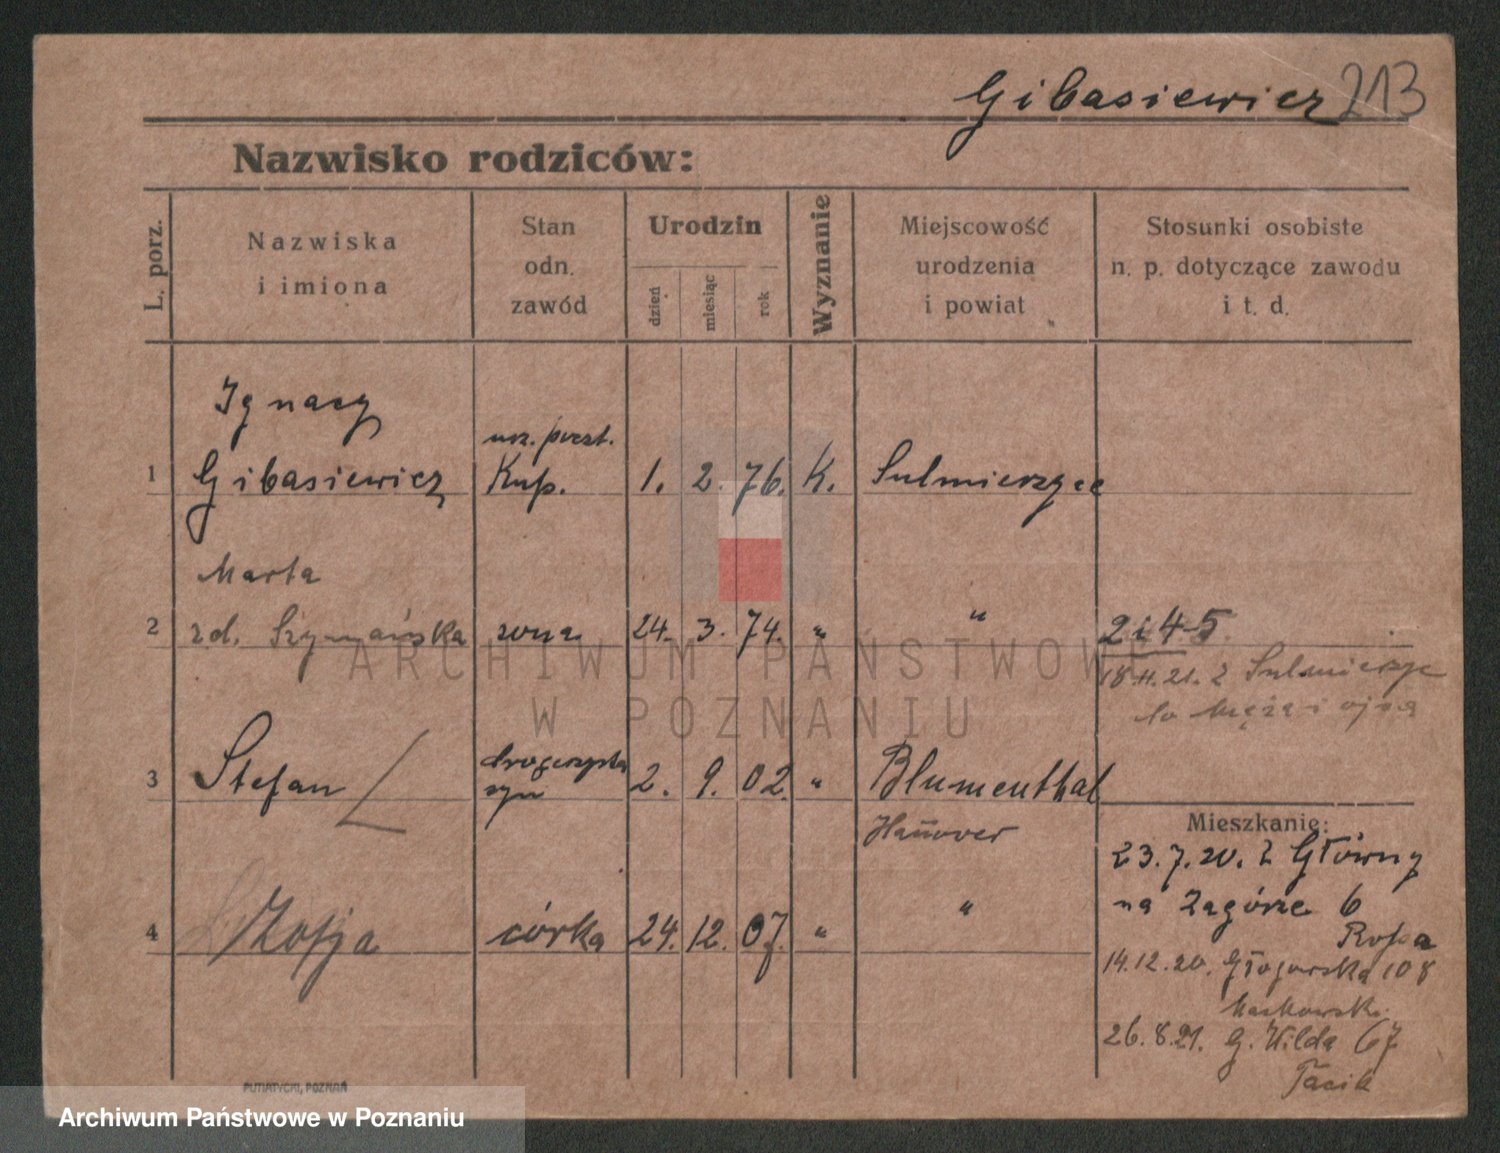 Gibasiewicz 213
Nazwisko rodziców:
L. porz.
Nazwiska
i imiona
Stan
odn.
zawód
Urodzin
dzień
miesiąc
rok
Wyznanie
Miejscowość
urodzenia
i powiat
Stosunki osobiste
n. p. dotyczące zawodu
i t. d.
Ignacy
urz. poczt.
1 Gibasiewicz Kup. 1. 2. 76. K. Sulmierzyce
Marta
2 zd. Szymańska żona 24. 3. 74. " " 2 i 4-5
18.11.21. z Sulmierzyc
do męża i ojca
drogerzysta
3 Stefan syn 2. 9. 02. " Blumenthal
Hannover
Mieszkanie:
23.7.20. z Główny
na Zagórze 6
4 Zofja córka 24. 12. 07. " "
14.12.20. Głogowska 108
26.8.21. G. Wilda 67
Tacik
PUTIATYCKI, POZNAŃ
ARCHIWUM PAŃSTWOWE
W POZNANIU
Archiwum Państwowe w Poznaniu